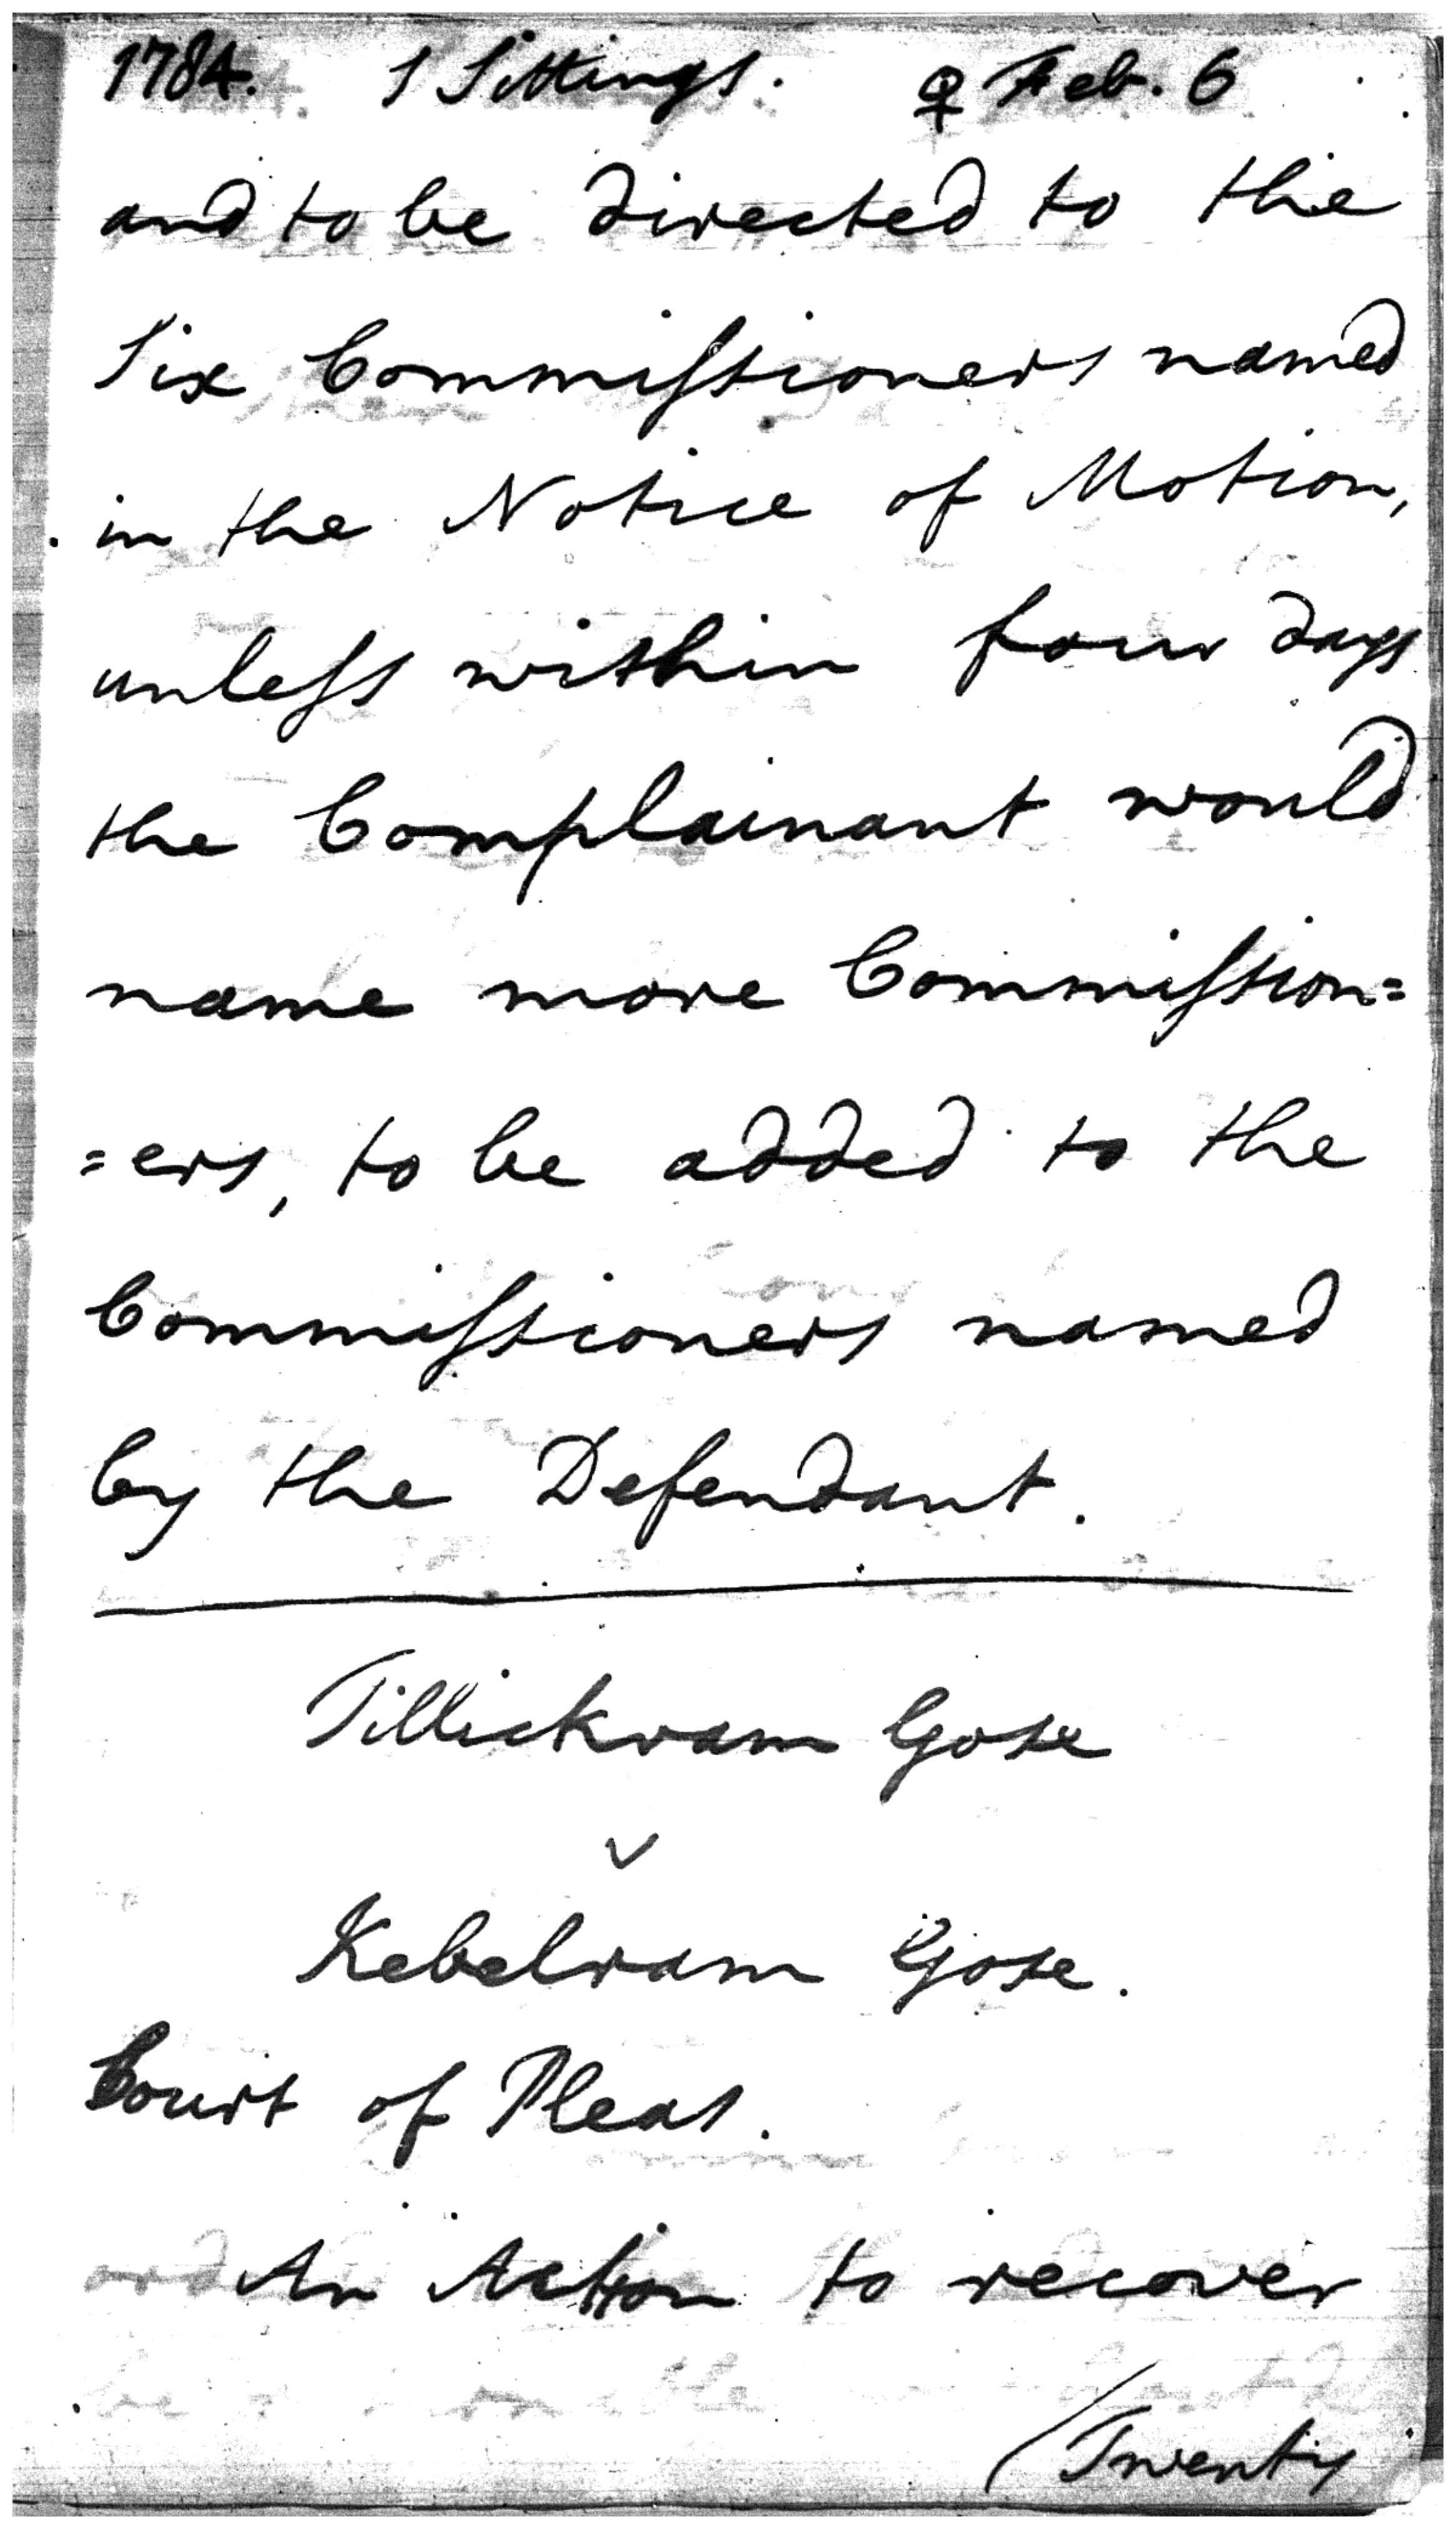 1784. S Sittings. ♀ Feb. 6
and to be directed to the
Six Commiſsioners named
in the Notice of Motion,
unleſs within four days
the Complainant would
name more Commiſsion=
=ers, to be added to the
Commiſsioners named
by the Defendant.
Tillickram Gose
v
Kebelram Gose.
Court of Pleas.
An Action to recover
/Twenty